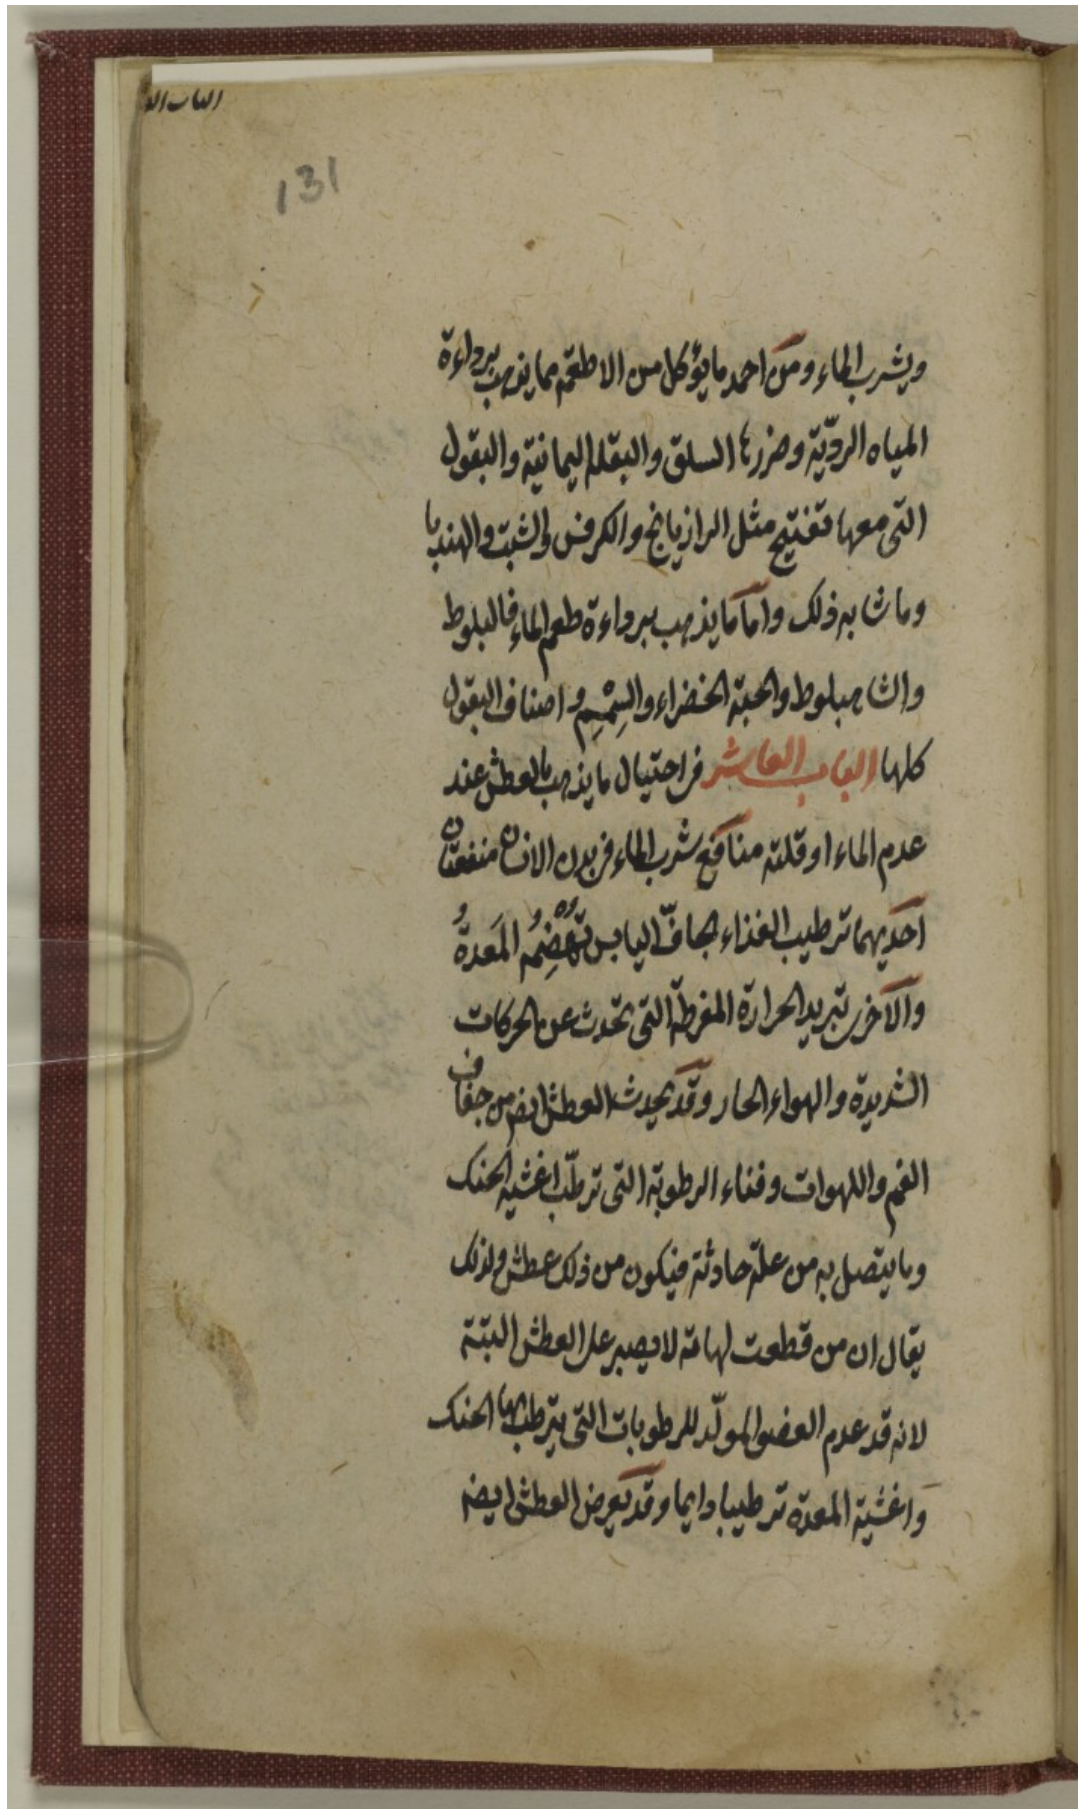 الباب ال
131
ويشرب الماء ومن احمد ما يؤكل من الاطعمة مما يذهب برداءة
المياه الرديّة وضررها السلق والبقلة اليمانية والبقول
التى معها تفتيح مثل الرازيانج والكرفس والشبت والهندبا
وما شابه ذلك واما ما يذهب برداءة طعم الماء فالبلوط
والشاهبلوط والحبة الخضراء والسِمْسِم واصناف البقول
كلها الباب العاشر فى احتيال ما يذهب بالعطش عند
عدم الماء او قلته منافع شرب الماء فى بدن الانسان منفعتان
احديهما ترطيب الغذاء الجافّ اليابس تهضِمُه المَعدةُ
والآخرى تبريد الحرارة المفرطة التى تحدث عن الحركات
الشديدة والهواء الحار وقد يحدث العطش ايضا من جفاف
الفم واللهوات وفناء الرطوبة التى ترطّب اغشية الحنك
وما يتصل به من علة حادثة فيكون من ذلك عطش ولذلك
يقال ان من قطعت لهاته لا يصبر على العطش البتة
لانه قد عدم العضو المولّد للرطوبات التى يترطب بها الحنك
وَاغشية المعدة ترطيبا دايما وقد يعرض العطش ايضا